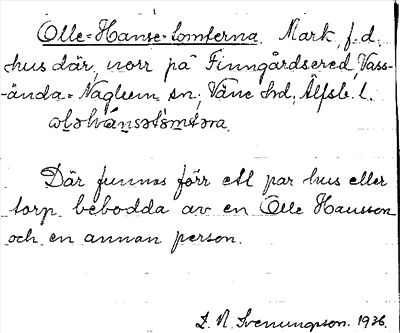 Olle-Hanse-tomterna. Mark, f.d.
hus där, norr på Finngårdsered, Vass-
ända-Naglum sn, Väne hd, Älfsb. l.
Där funnos förr ett par hus eller
torp bebodda av en Olle Hansson
och en annan person.
L. N. Svenungsson. 1936.